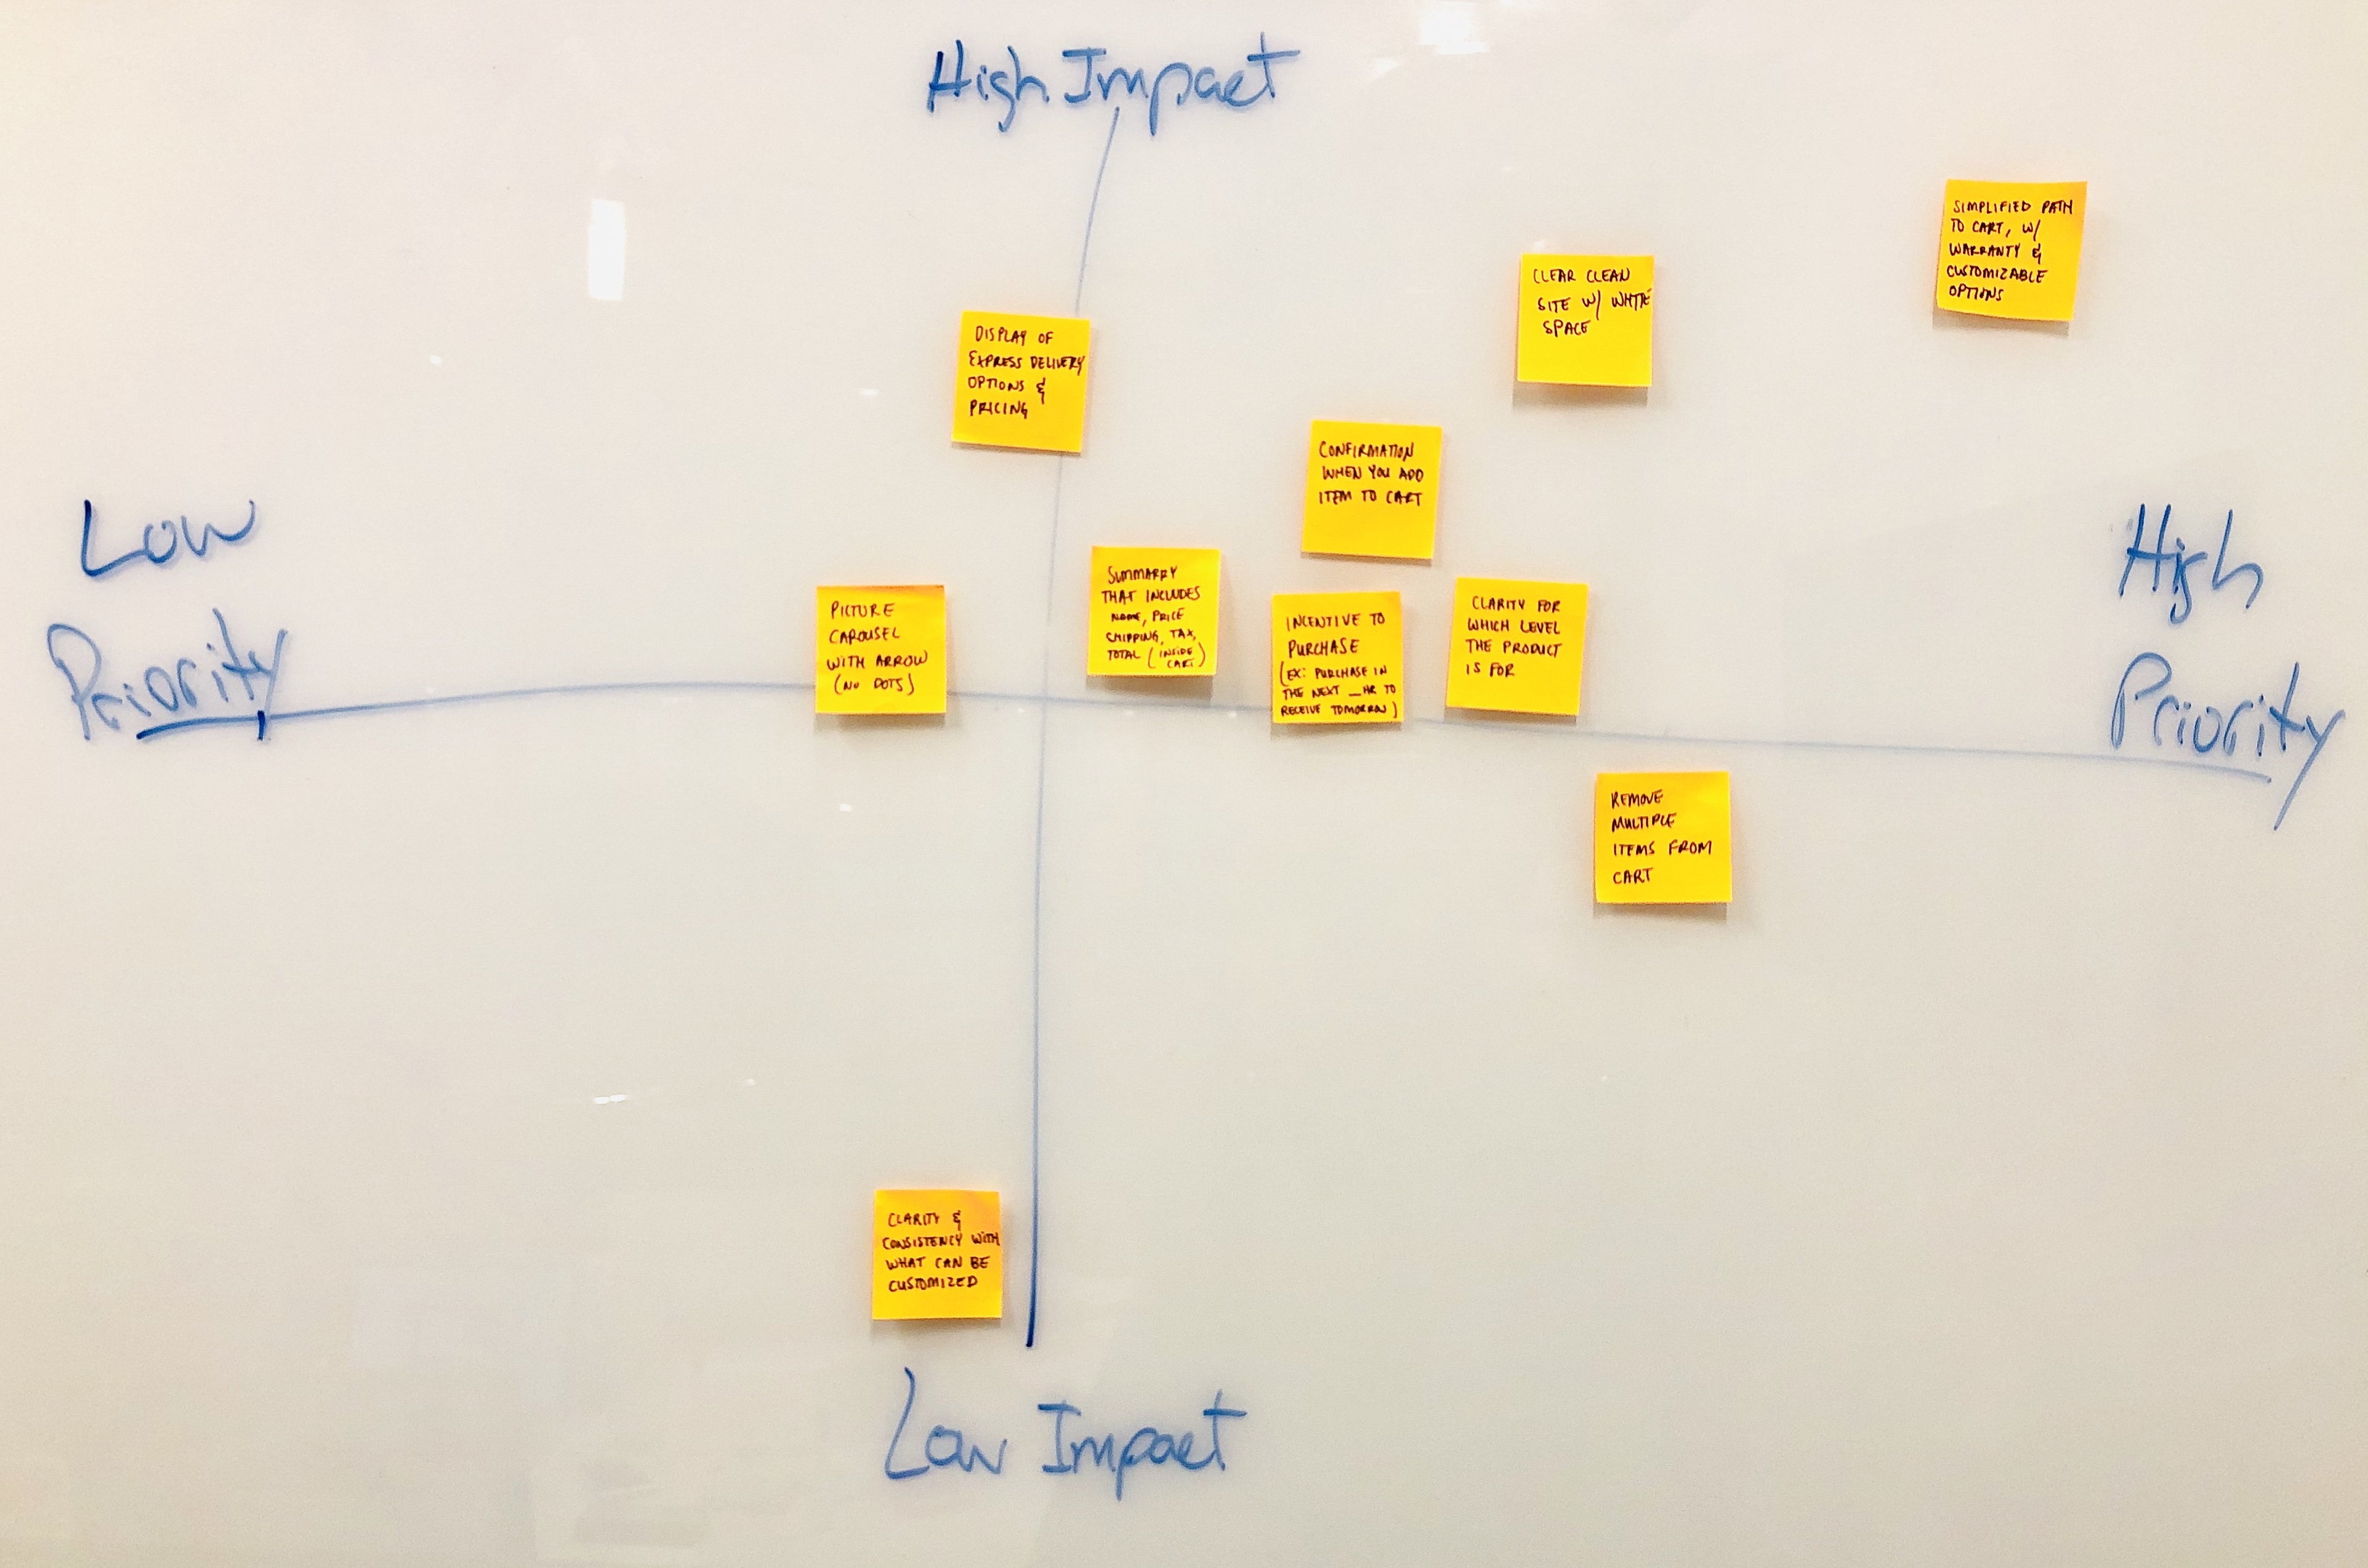 High Impact
SIMPLIFIED PATH
TO CART, W/
WARRANTY &
CUSTOMIZABLE
OPTIONS
CLEAR CLEAN
SITE W/ WHITE
SPACE
DISPLAY OF
EXPRESS DELIVERY
OPTIONS &
PRICING
CONFIRMATION
WHEN YOU ADD
ITEM TO CART
Low
Priority
High
Priority
PICTURE
CAROUSEL
WITH ARROW
(NO DOTS)
SUMMARRY
THAT INCLUDES
NAME, PRICE
SHIPPING, TAX,
TOTAL (INSIDE
CART)
INCENTIVE TO
PURCHASE
(EX: PURCHASE IN
THE NEXT __HR TO
RECEIVE TOMORROW)
CLARITY FOR
WHICH LEVEL
THE PRODUCT
IS FOR
REMOVE
MULTIPLE
ITEMS FROM
CART
CLARITY &
CONSISTENCY WITH
WHAT CAN BE
CUSTOMIZED
Low Impact